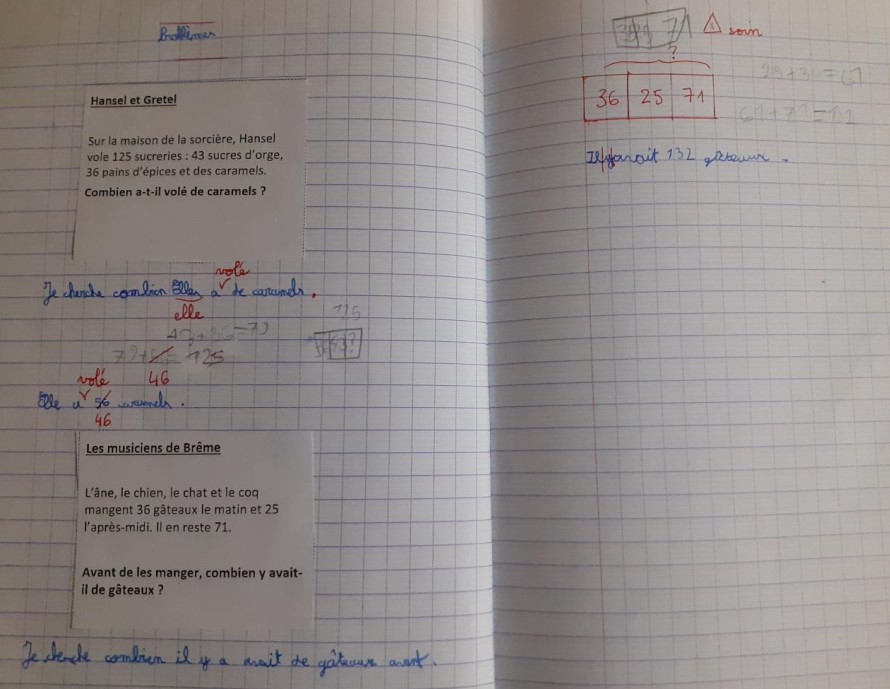 Problèmes
Hansel et Gretel
Sur la maison de la sorcière, Hansel
vole 125 sucreries : 43 sucres d'orge,
36 pains d'épices et des caramels.
Combien a-t-il volé de caramels ?
volé
Je cherche combien Elle a de caramels.
elle
125
43+36=79
79+ = 125
volé 46
Elle a 56 caramels.
46
Les musiciens de Brême
L'âne, le chien, le chat et le coq
mangent 36 gâteaux le matin et 25
l'après-midi. Il en reste 71.
Avant de les manger, combien y avait-
il de gâteaux ?
Je cherche combien il y a avait de gâteaux avant.
71 soin
?
36 25 71
Il y avait 132 gâteaux.